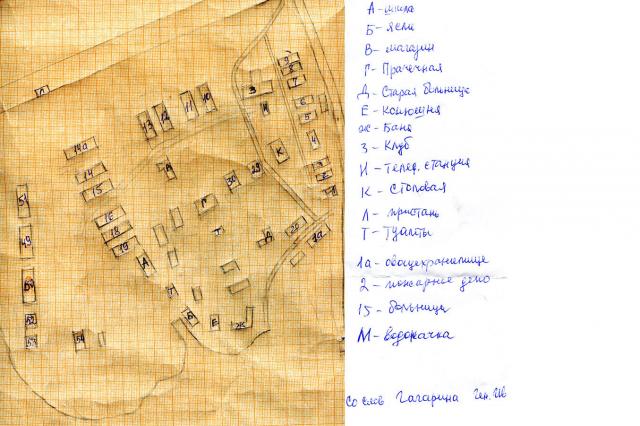 А - школа
Б - Ясли
В - магазин
Г - Прачечная
Д - Старая больница
Е - Конюшня
Ж - Баня
З - Клуб
И - телеф. станция
К - Столовая
Л - пристань
Т - Туалеты
1а - овощехранилище
2 - пожарное депо
15 - больница
М - водокачка
Со слов Гагарина Ген. Ив
Л
14а
14
15
16
18
19
А
13
12
11
10
В
Г
30
29
К
З
И
9
8
7
6
5
4
3
2
1
Т
Д
20
1а
Т
Б
Е
Ж
51
49
50
52
53
54